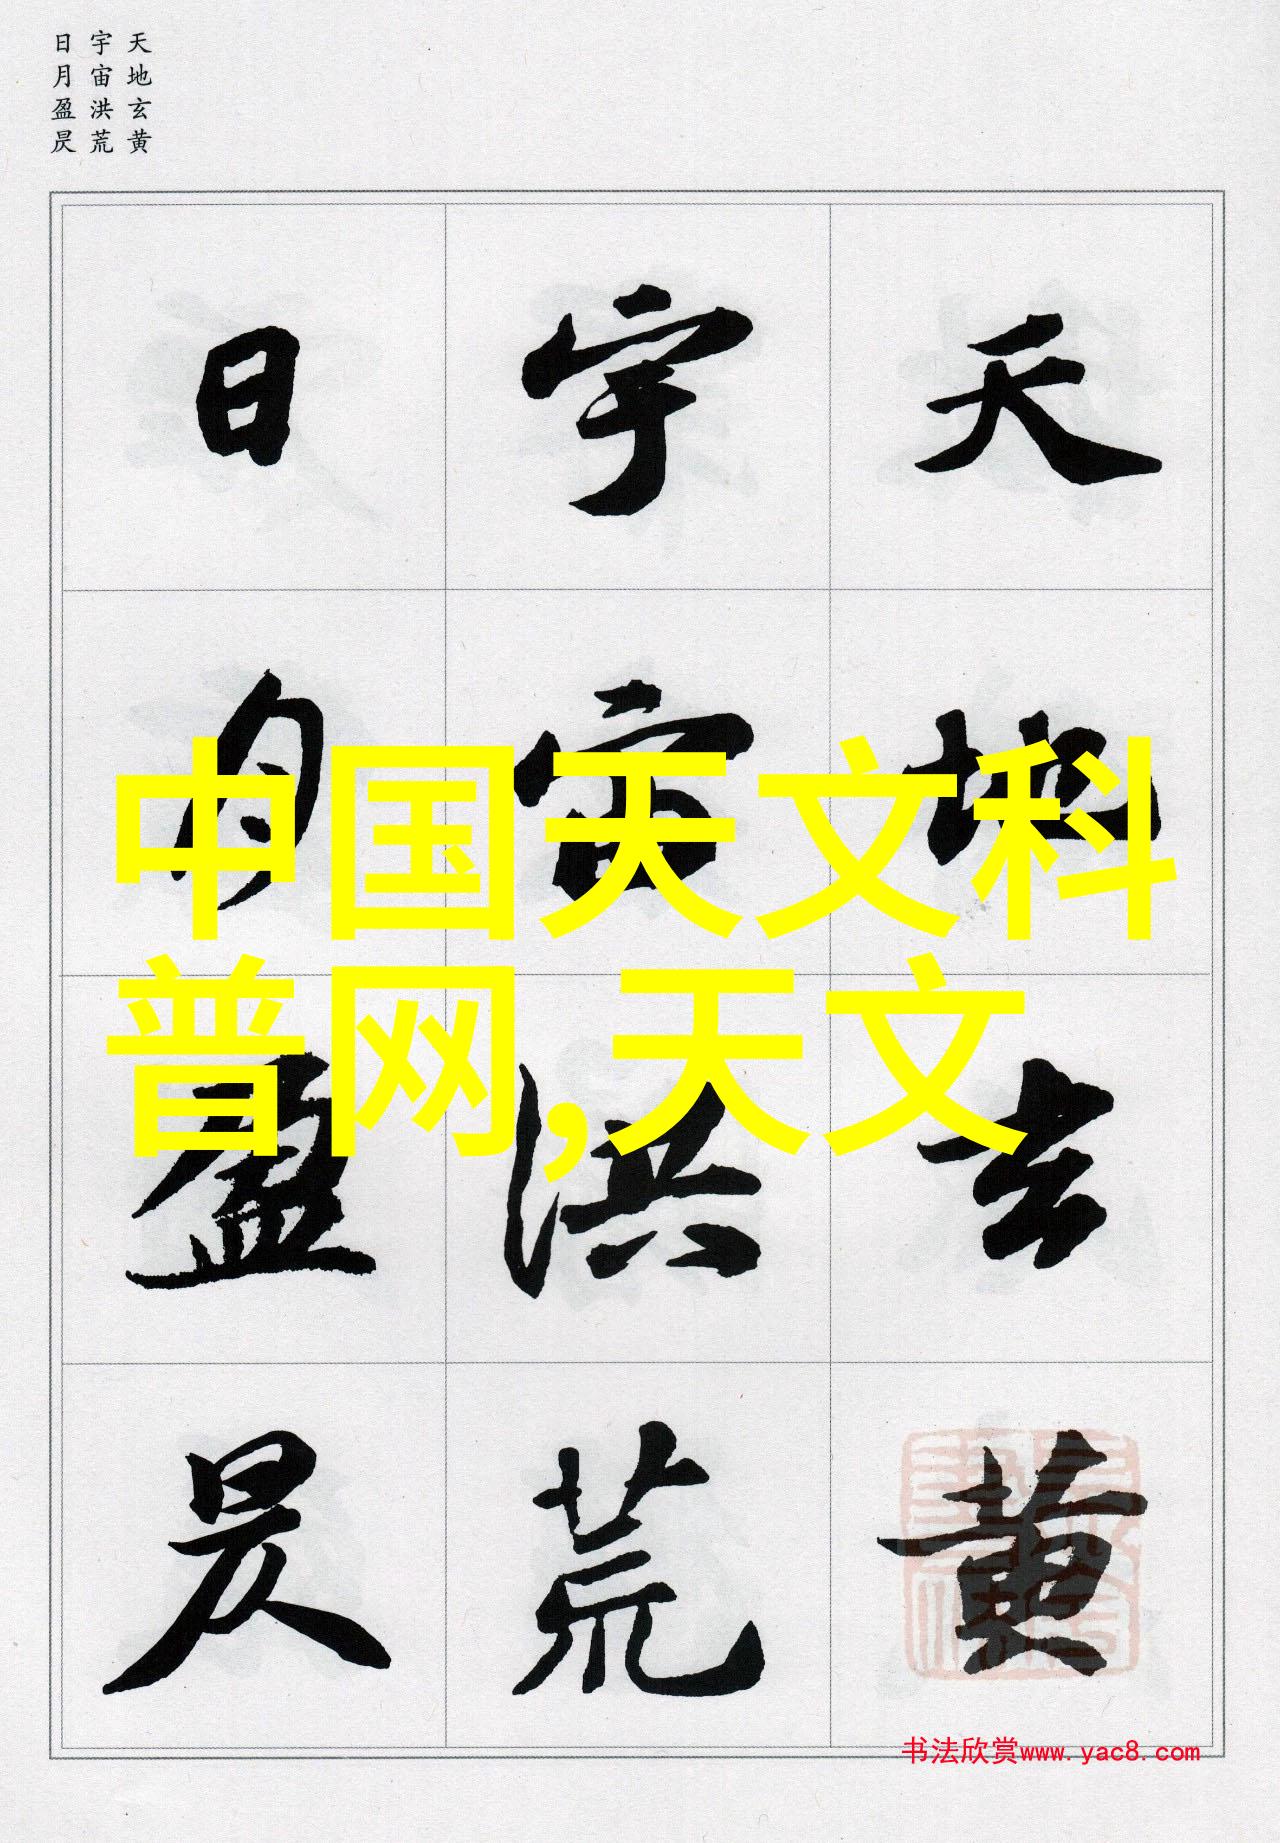 天地玄黄
宇宙洪荒
日月盈昃
天地玄黄
宇宙洪荒
日月盈昃
中国天文科
普网,天文
书法欣赏www.yac8.com